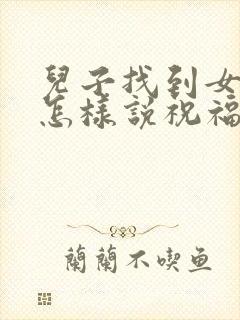 兒子找到女
怎樣説祝福
蘭蘭不喫鱼